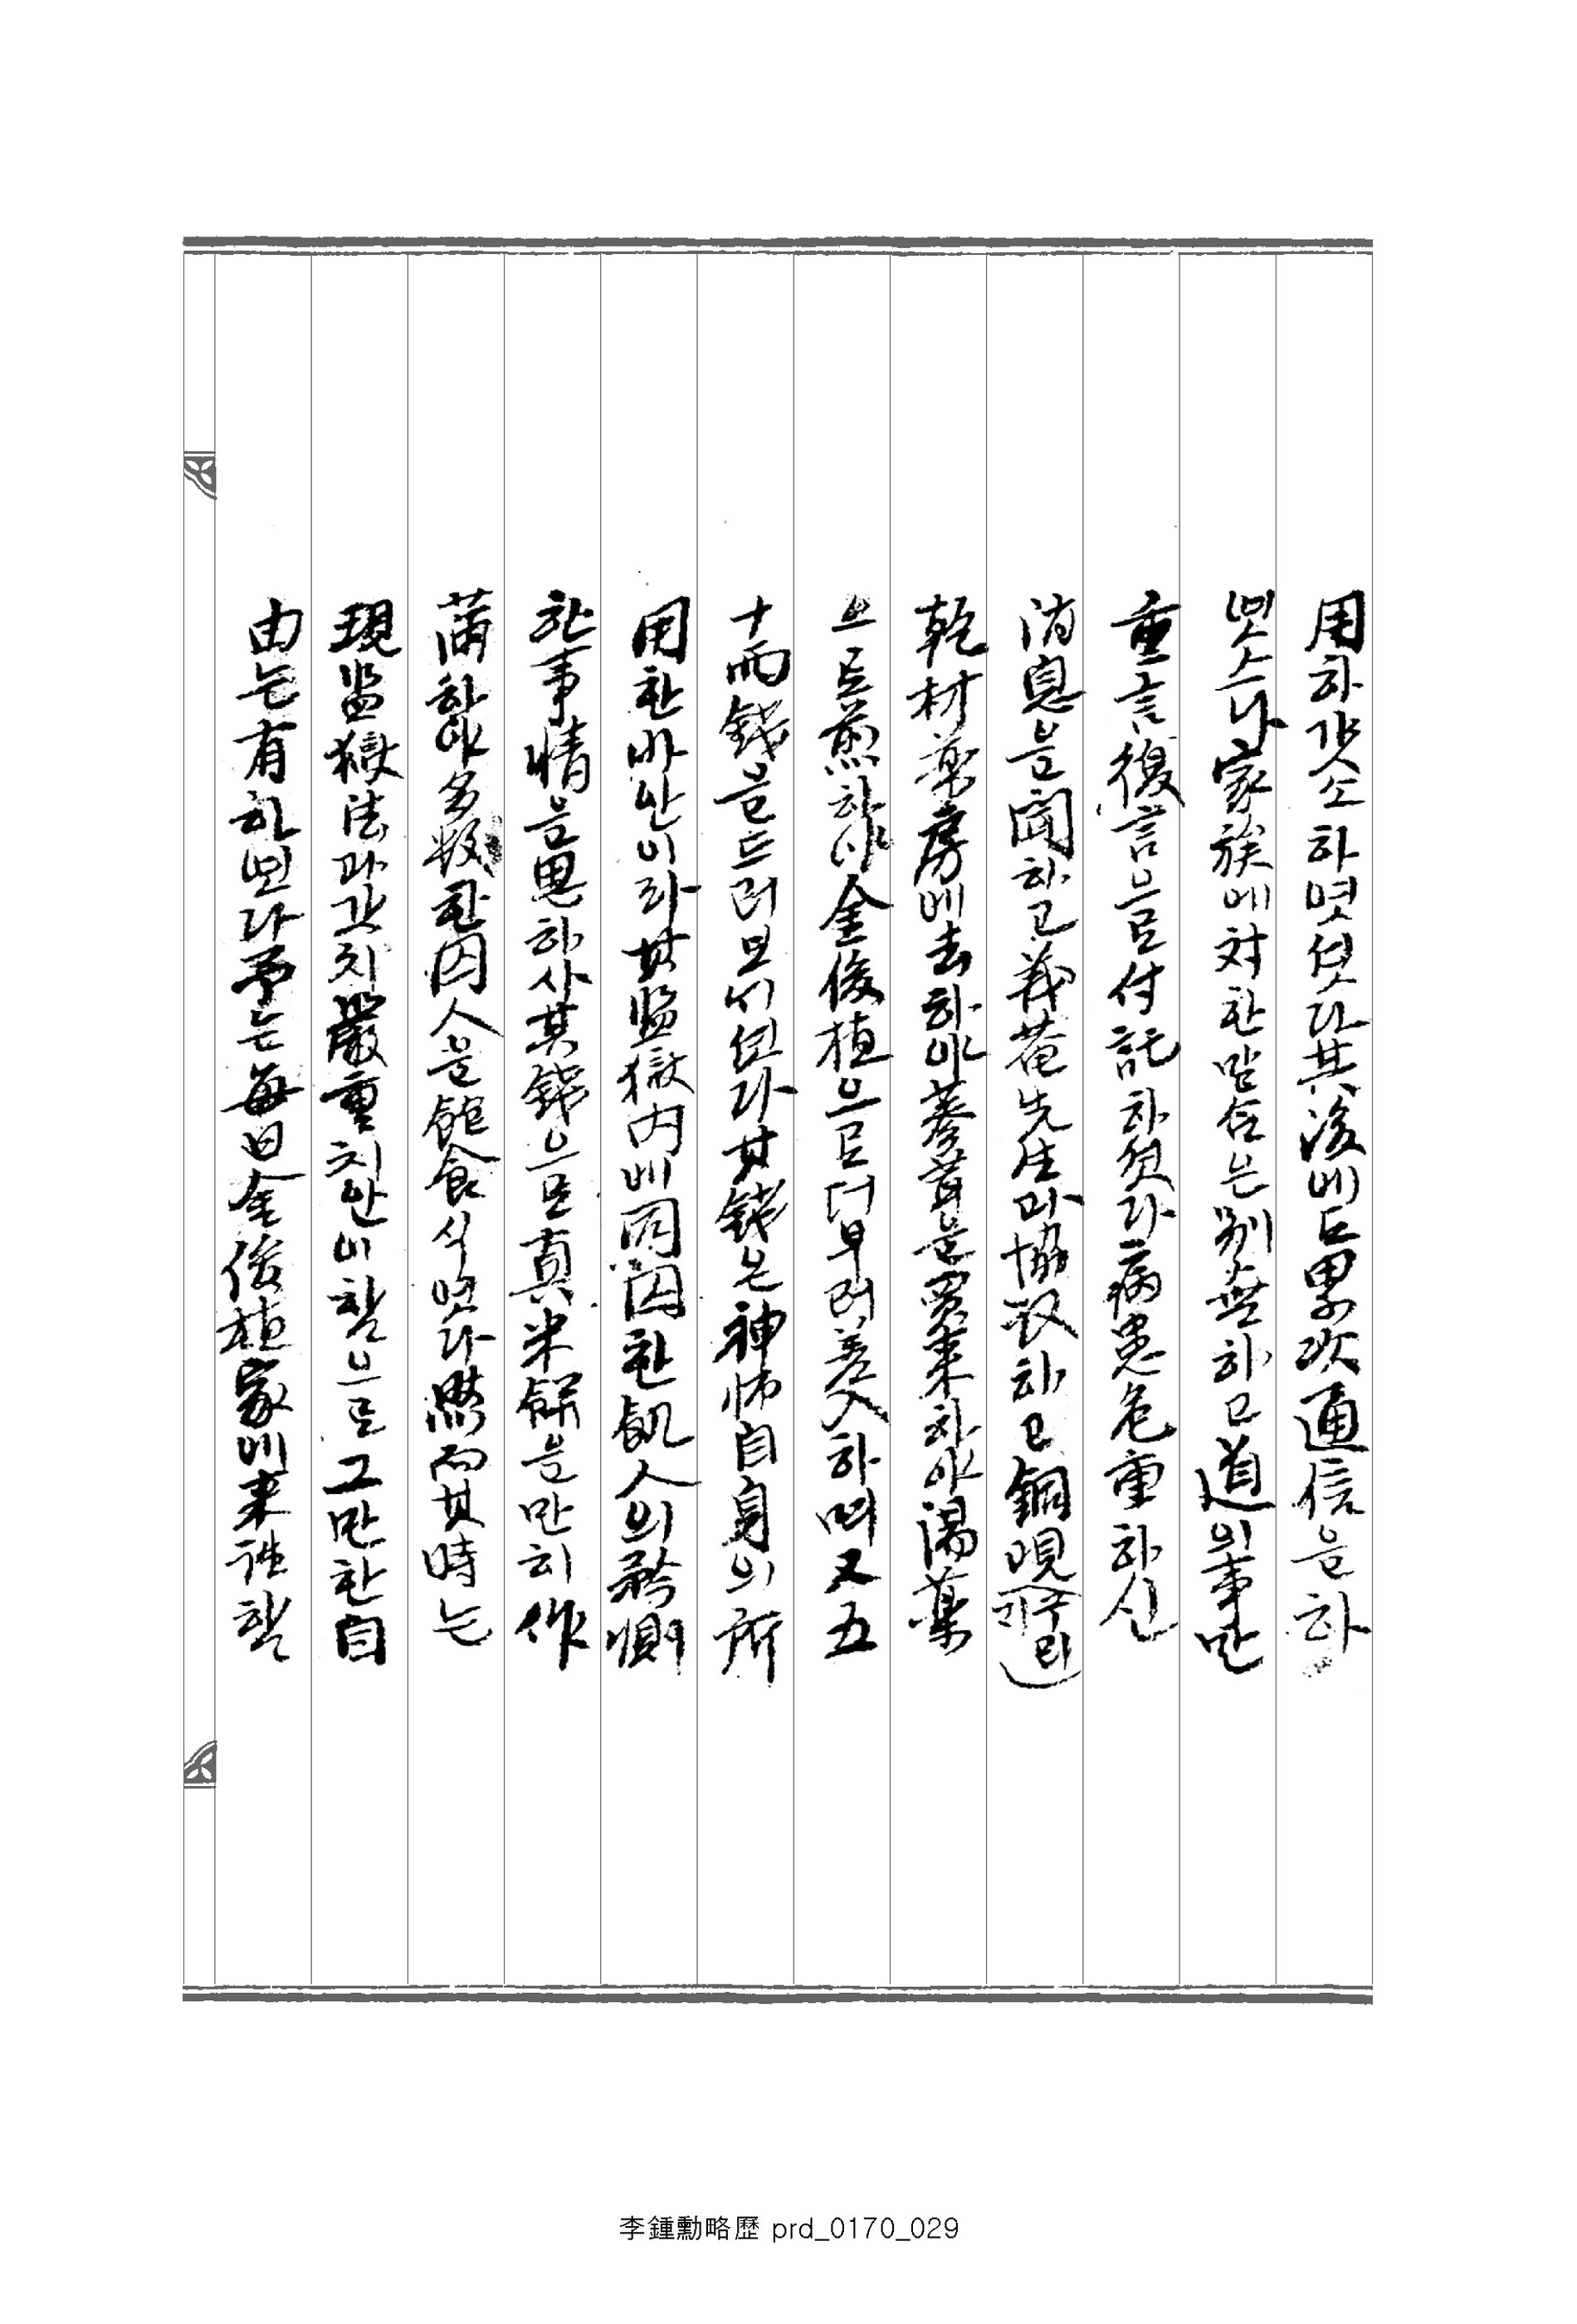 用하갓소하엿섯다其後에도累次通信을하
엿스나家族에対한말삼은別無하고道의事만
重言復言으로付託하엿다病患危重하신
消息을聞하고義菴先生과協議하고銅哯(구리)
乾材藥房에去하야蔘茸을買來하야湯藥
으로煎하야金俊植으로더부러差入하며又五
十両錢을드려보시엿다其錢은神師自身의所
用한바안이라其監獄內에同囚한飢人의矜惻
한事情을思하사其錢으로真米餠을만히作
하야多數한囚人을飽食식엿다然而其時는
現監獄法과갓치嚴重치안이함으로그만한自
由는有하엿다予는每日金俊植家에来往함